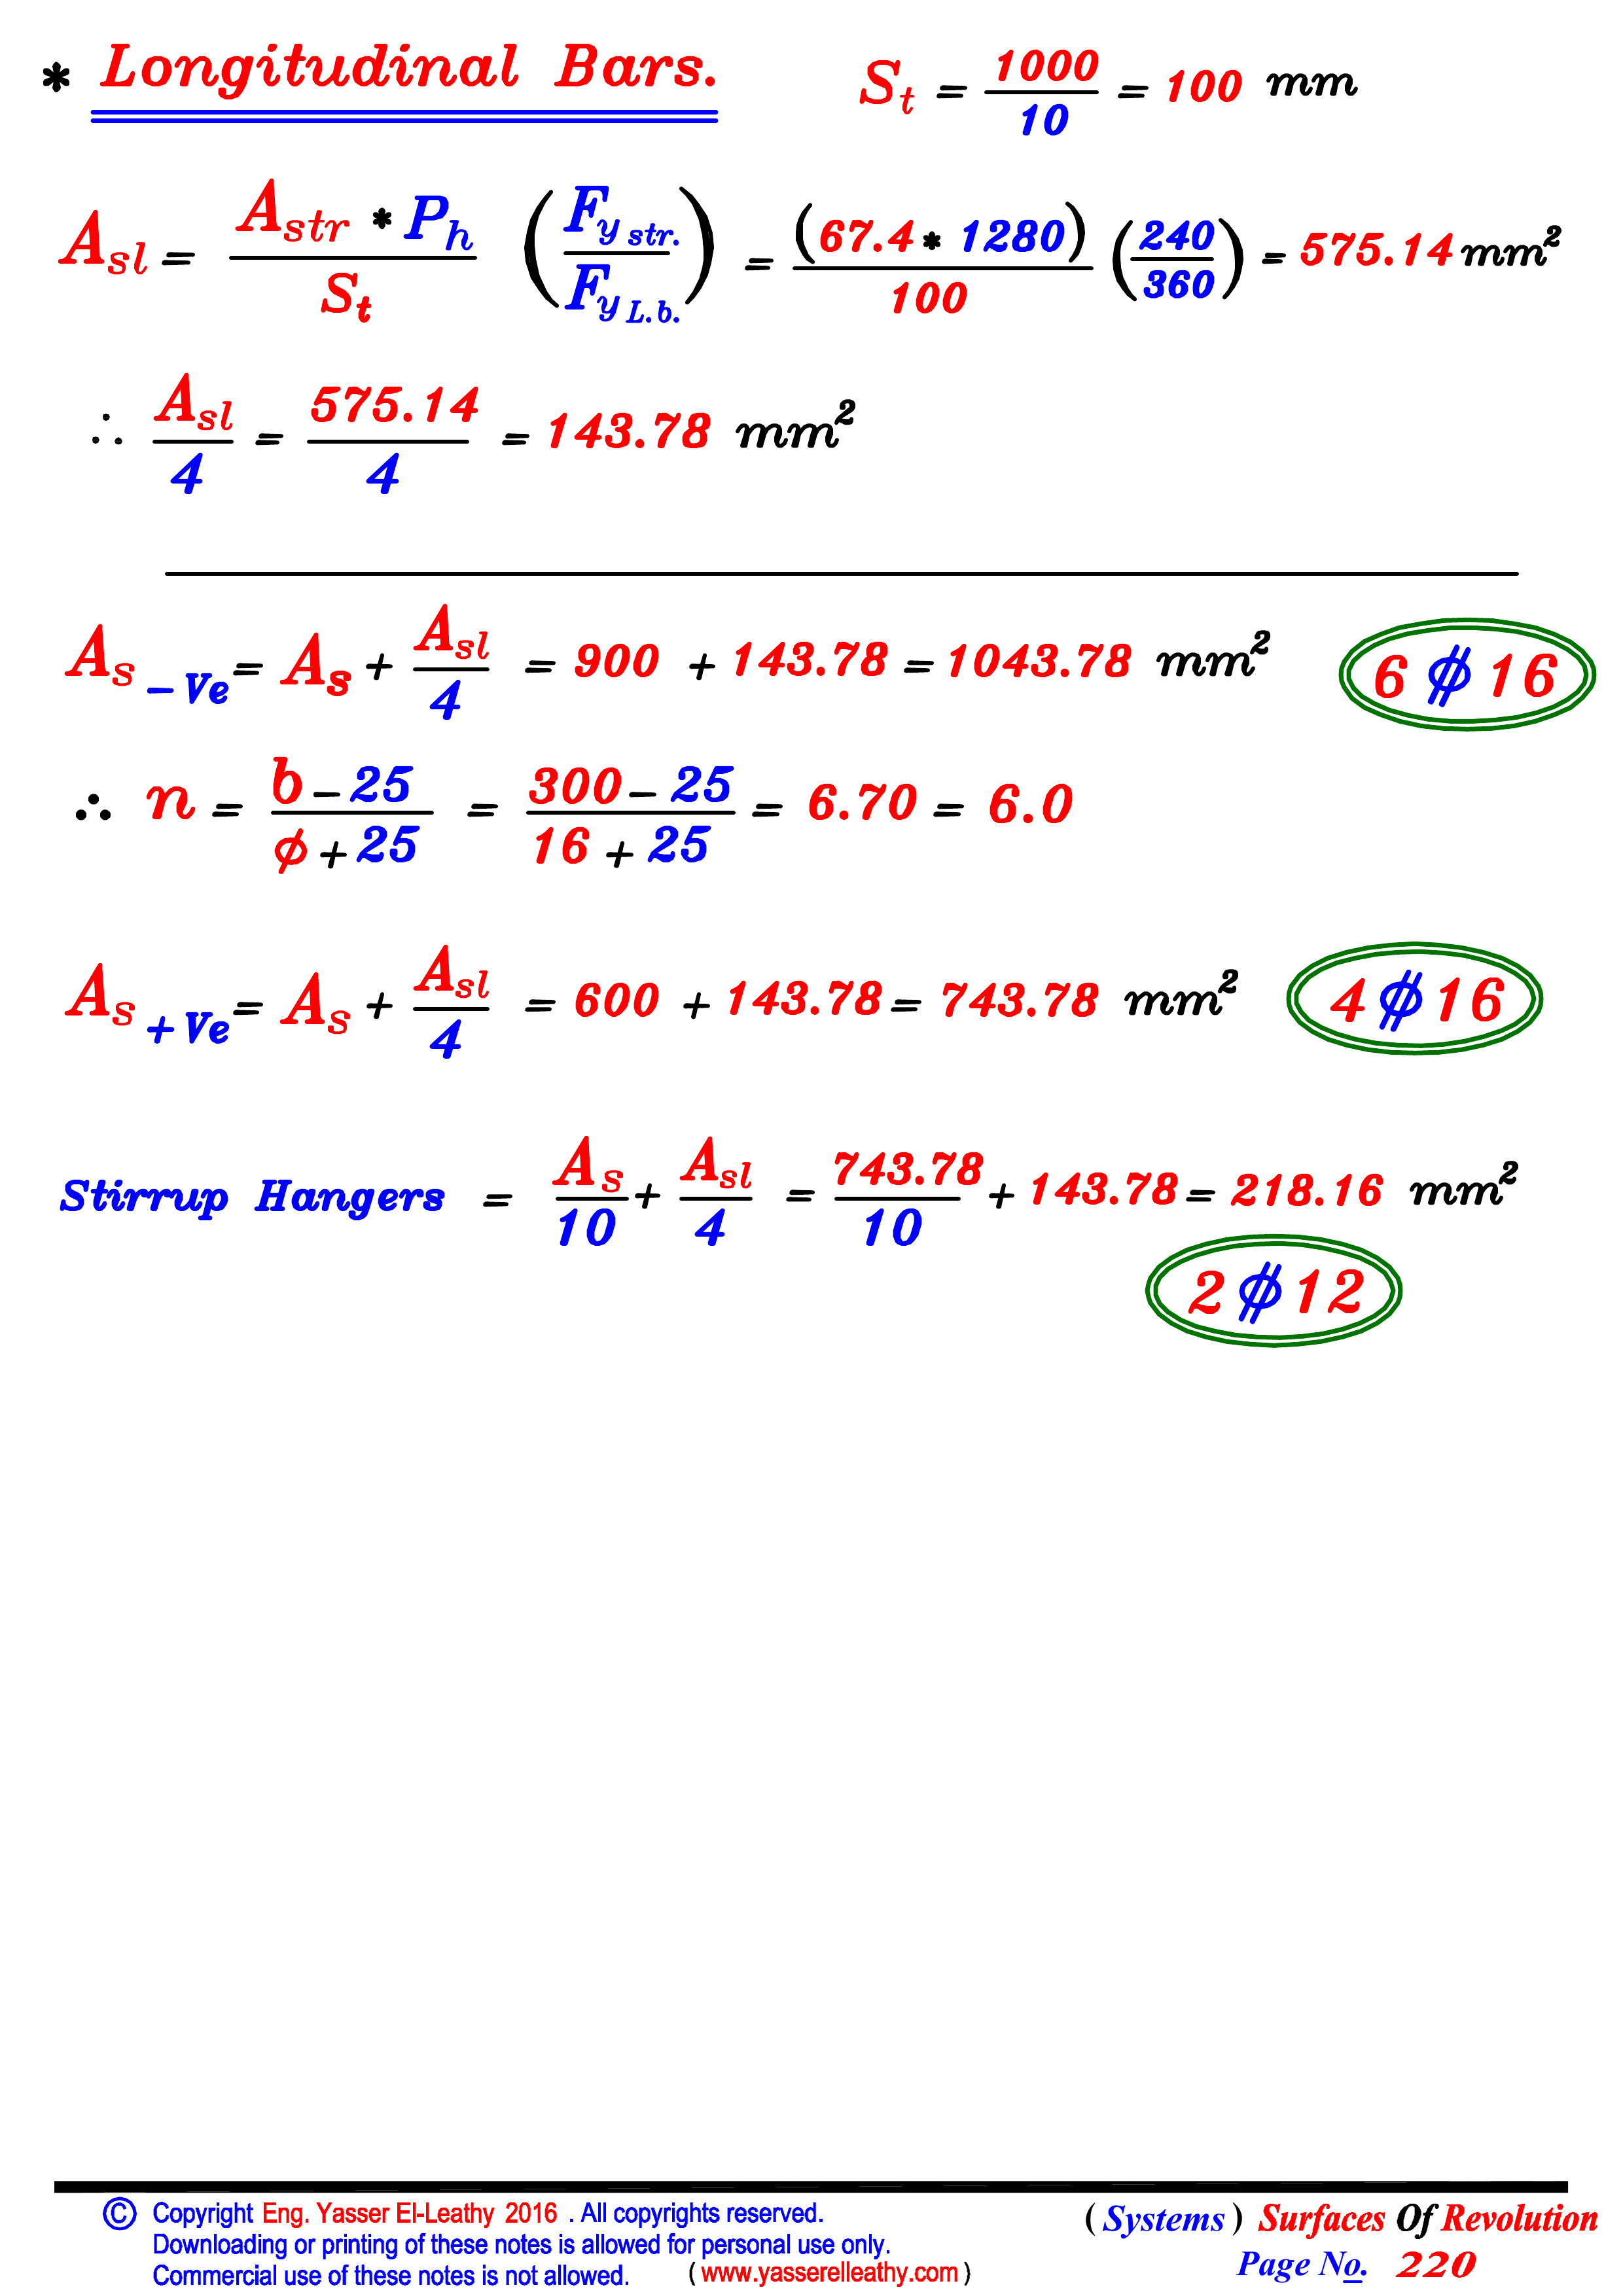 * Longitudinal Bars. S_t = 1000/10 = 100 mm
A_sl = (A_str * P_h)/S_t (F_y str. / F_y L.b.) = (67.4 * 1280)/100 (240/360) = 575.14 mm²
∴ A_sl/4 = 575.14/4 = 143.78 mm²
A_s -Ve = A_s + A_sl/4 = 900 + 143.78 = 1043.78 mm² 6 ⌀ 16
∴ n = (b - 25)/(ϕ + 25) = (300 - 25)/(16 + 25) = 6.70 = 6.0
A_s +Ve = A_s + A_sl/4 = 600 + 143.78 = 743.78 mm² 4 ⌀ 16
Stirrup Hangers = A_s/10 + A_sl/4 = 743.78/10 + 143.78 = 218.16 mm²
2 ⌀ 12
© Copyright Eng. Yasser El-Leathy 2016 . All copyrights reserved.
Downloading or printing of these notes is allowed for personal use only.
Commercial use of these notes is not allowed. ( www.yasserelleathy.com )
( Systems ) Surfaces Of Revolution
Page No. 220